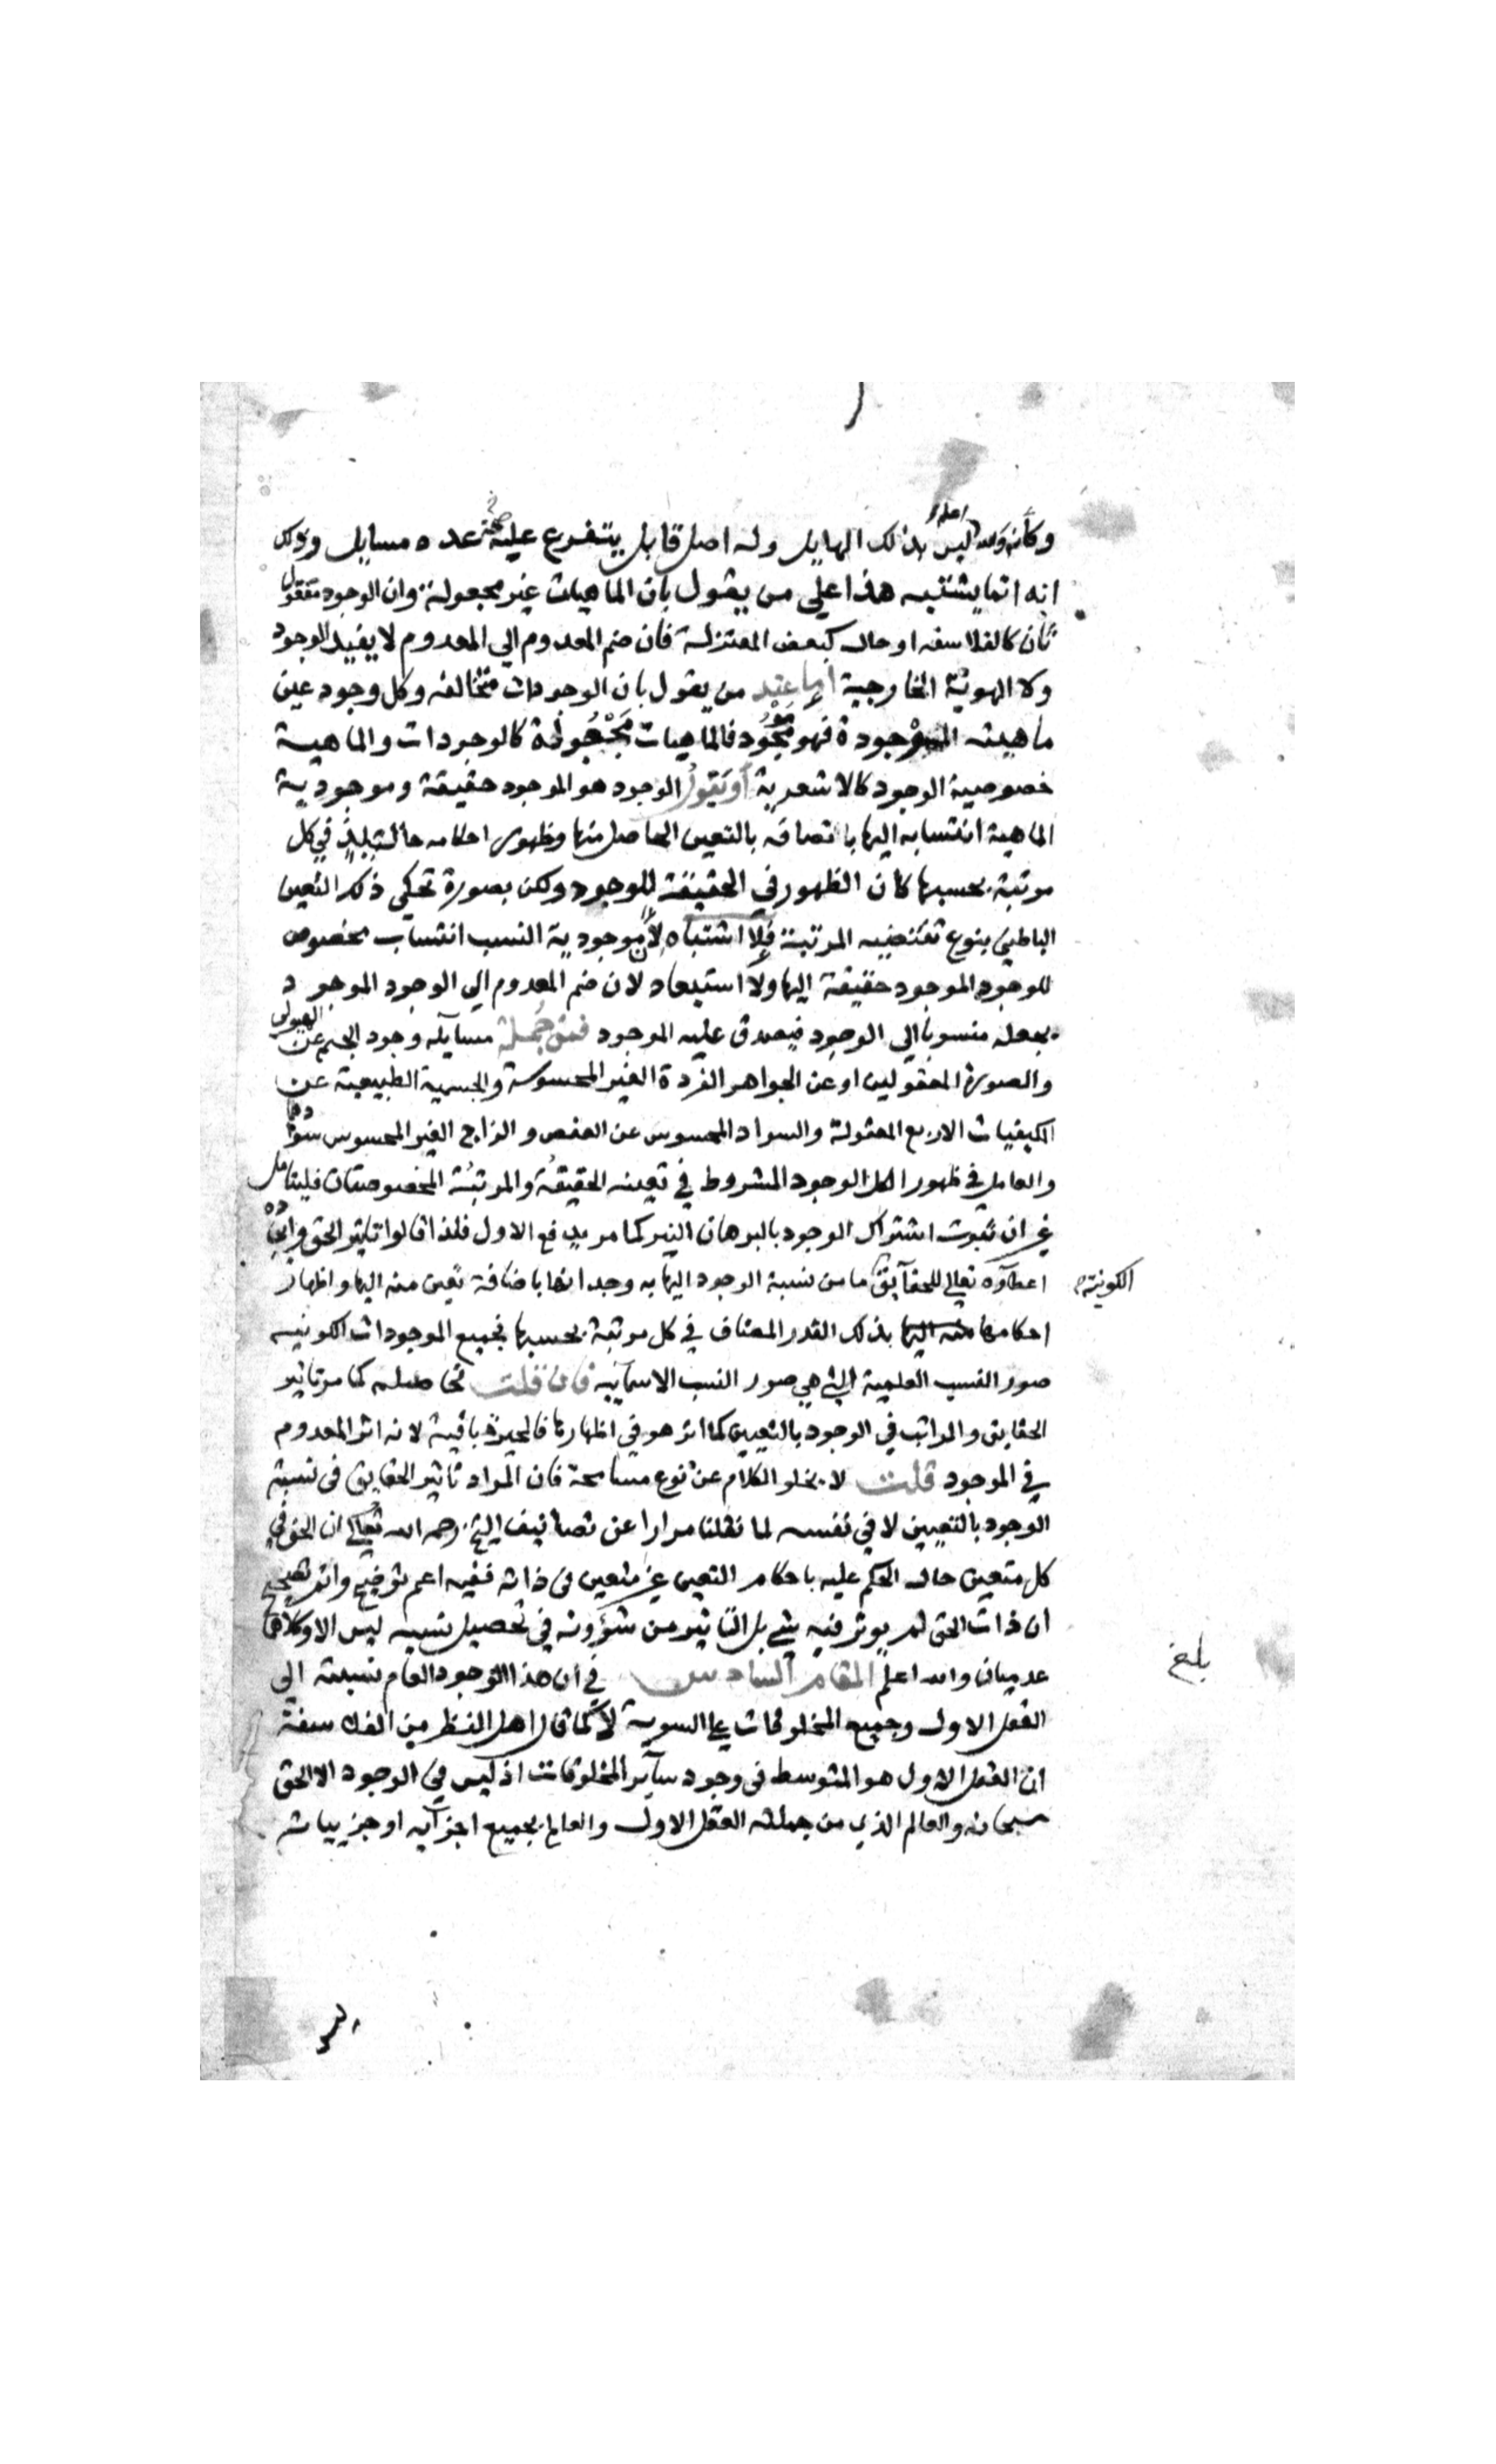 وكأنه والله اعلم ليس بذلك الهايل وله اصل قابل يتفرع عليه صحة عده مسايل وذلك
انه انما يشتبه هذا علي من يقول بان الماهيات غير مجعولة وان الوجود معقول
ثان كالفلاسفه او حال كبعض المعتزلة فان ضم المعدوم الي المعدوم لا يفيد الوجود
ولا الهوية الخارجية اما عند من يقول بان الوجودات متخالفه وكل وجود عين
ماهيته الموجودة فهو فالماهيات مجعولة كالوجودات والماهية
خصوصية الوجود كالاشعرية او يقول الوجود هو الموجود حقيقة وموجودية
الماهية انتسابه اليها باتصافه بالتعين الحاصل منها وظهور احكامه حالتئذ في كل
مرتبة بحسبها كان الظهور في الحقيقة للوجود ولكن بصورة تحكي ذلك التعين
الباطني بنوع تقتضيه المرتبة فلا اشتباه لان موجودية النسب انتساب مخصوص
للوجود الموجود حقيقة اليها ولا استبعاد لان ضم المعدوم الي الوجود الموجود
يجعله منسوبا الي الوجود فيصدق عليه الموجود فمن جملة مسايله وجود الجسم عن الهيولى
والصورة المعقولين او عن الجواهر الفردة الغير المحسوسة والجسمية الطبيعية عن
الكيفيات الاربع المعقولة والسواد المحسوس عن العفص والزاج الغير المحسوس سوادهما
والعامل في ظهور الكل الوجود المشروط في تعينه الحقيقة والمرتبة المخصوصتان فليتامل
غير ان ثبوت اشتراك الوجود بالبرهان النير كما مر يدفع الاول فلذا قالوا تاثير الحق وايجاده
اعطاؤه تعالي للحقايق الكونية ما من نسبة الوجود اليها به وجدانها باضافة تعين منه اليها واظهار
احكامها منه اليها بذلك القدر المضاف في كل مرتبة بحسبها فجميع الموجودات الكونيه
صور النسب العلمية التي هي صور النسب الاسمآييه فان قلت فحاصله كما مر تاثير
الحقايق والمراتب في الوجود بالتعيين كما اثر هو في اظهارها فالحيرة باقية لانه اثر المعدوم
في الموجود قلت لا يخلو الكلام عن نوع مسامحة فان المراد تاثير الحقايق في نسبة
الوجود بالتعيين لا في نفسه لما نقلنا مرارا عن تصانيف الشيخ رحمه الله تعالي ان الحق في
كل متعين حال الحكم عليه باحكام التعين غير متعين في ذاته ففيه اعم توضيح واتم تصحيح
ان ذات الحق لم يوثر فيه شي بل التاثير من شؤونه في تحصيل نسبه ليس الا وكلاهما
عدميان والله اعلم المقام السادس في ان هذا الوجود العام نسبته الي
العقل الاول وجميع المخلوقات علي السوية لا كما قال اهل النظر من الفلاسفة
ان العقل الاول هو المتوسط في وجود سآير المخلوقات اذ ليس في الوجود الا الحق
سبحانه والعالم الذي من جملته العقل الاول والعالم بجميع اجزآيه او جزيياته
بلغ